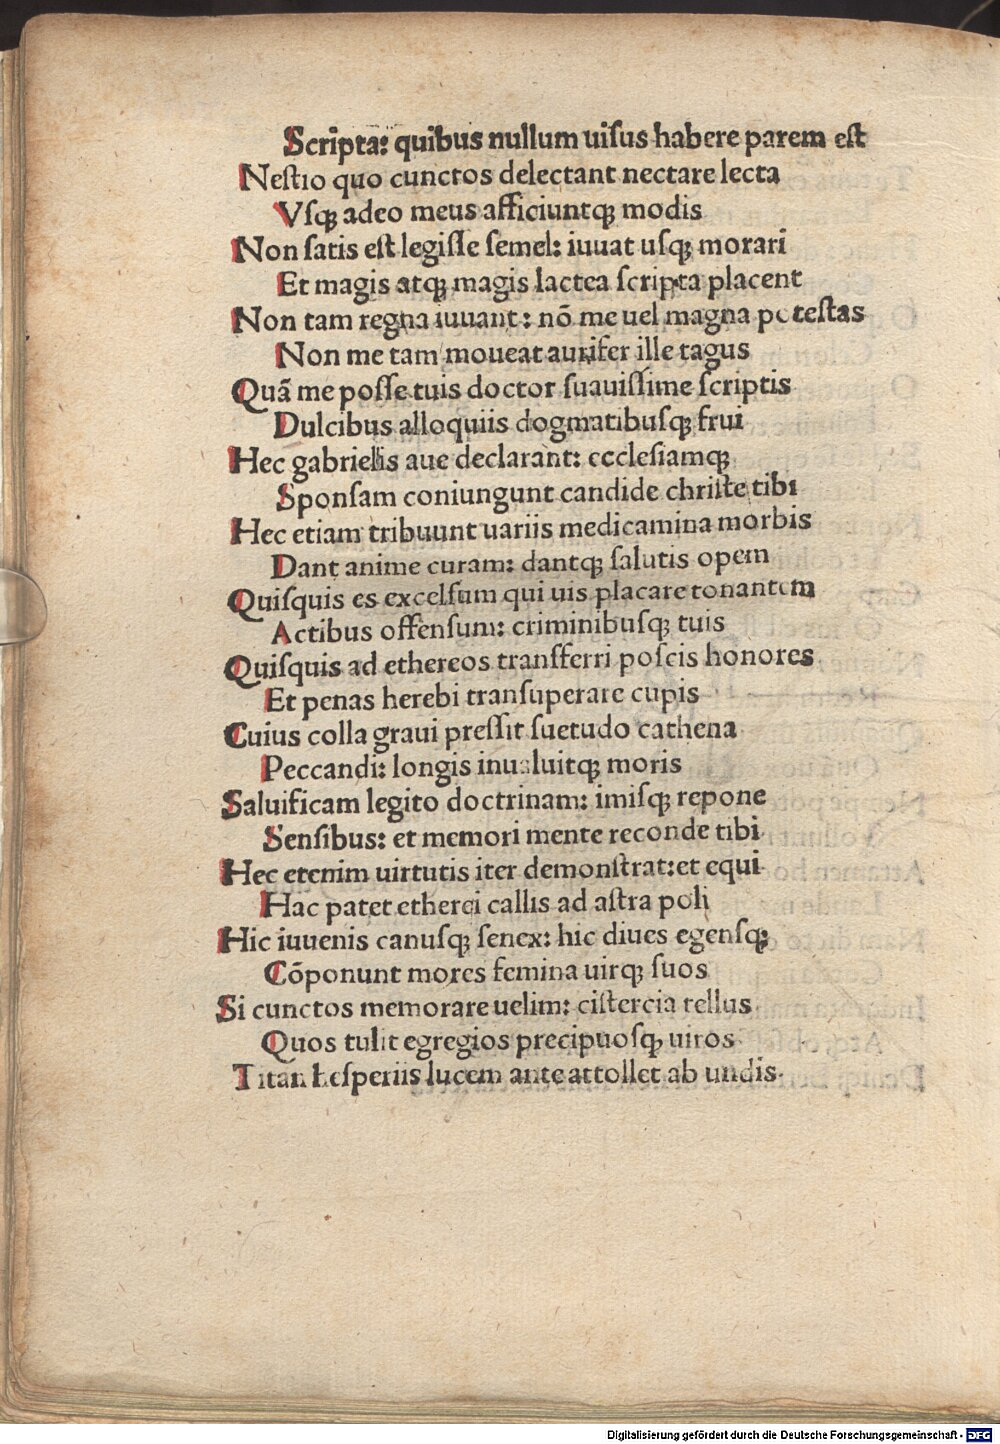 Scripta: quibus nullum uiſus habere parem eſt
Neſtio quo cunctos delectant nectare lecta
Vſqꝫ adeo meus afficiuntqꝫ modis
Non ſatis eſt legiſſe ſemel: iuuat uſqꝫ morari
Et magis atqꝫ magis lactea ſcripta placent
Non tam regna iuuant: nō me uel magna poteſtas
Non me tam moueat aurifer ille tagus
Quā me poſſe tuis doctor ſuauiſſime ſcriptis
Dulcibus alloquiis dogmatibuſqꝫ frui
Hec gabrielis aue declarant: eccleſiamqꝫ
Sponſam coniungunt candide chriſte tibi
Hec etiam tribuunt uariis medicamina morbis
Dant anime curam: dantqꝫ ſalutis opem
Quiſquis es excelſum qui uis placare tonantem
Actibus offenſum: criminibuſqꝫ tuis
Quiſquis ad ethereos tranſferri poſcis honores
Et penas herebi tranſuperare cupis
Cuius colla graui preſſit ſuetudo cathena
Peccandi: longis inualuitqꝫ moris
Saluificam legito doctrinam: imiſqꝫ repone
Senſibus: et memori mente reconde tibi
Hec etenim uirtutis iter demonſtrat: et equi
Hac patet etherei callis ad aſtra poli
Hic iuuenis canuſqꝫ ſenex: hic diues egenſqꝫ
Cōponunt mores femina uirqꝫ ſuos
Si cunctos memorare uelim: ciſtercia tellus
Quos tulit egregios precipuoſqꝫ uiros
Titan heſperiis lucem ante attollet ab undis.
Digitalisierung gefördert durch die Deutsche Forschungsgemeinschaft - DFG